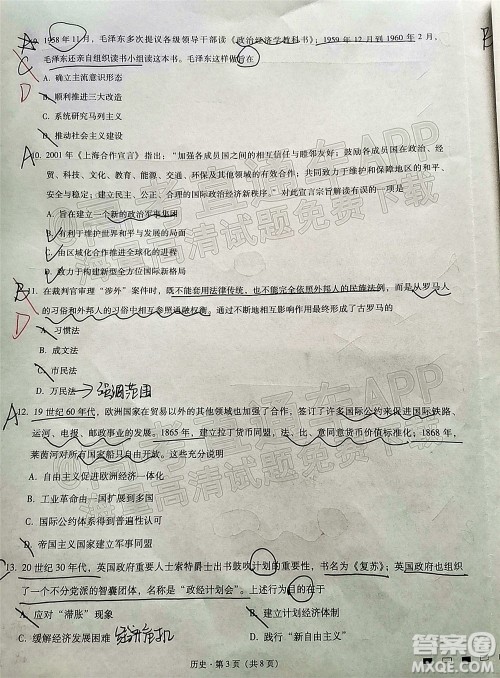 A 9. 1958 年 11 月，毛泽东多次提议各级领导干部读《政治经济学教科书》；1959 年 12 月到 1960 年 2 月，
C 毛泽东还亲自组织读书小组读这本书。毛泽东这样做旨在
D A. 确立主流意识形态
B. 顺利推进三大改造
C. 系统研究马列主义
D. 推动社会主义建设
A 10. 2001 年《上海合作宣言》指出：“加强各成员国之间的相互信任与睦邻友好；鼓励各成员国在政治、经
贸、科技、文化、教育、能源、交通、环保及其他领域的有效合作；共同致力于维护和保障地区的和平、安全与
稳定；建立民主、公正、合理的国际政治经济新秩序。”对此宣言宗旨解读有误的一项是
A. 旨在建立一个新的政治军事集团
B. 有利于维护世界和平与发展的局面
C. 由区域化合作推进全球化的进步
D. 致力于构建新型全方位国际新格局
B 11. 在裁判官审理“涉外”案件时，既不能套用法律传统，也不能完全依照外邦人的民族法例，而是从罗马人
的习俗和外邦人的习俗中相互参照通融权衡，由此类实践活动最终形成了古罗马的
D A. 习惯法
B. 成文法
C. 市民法
D. 万民法→强调范围
A 12. 19 世纪 60 年代，欧洲国家在贸易以外的其他领域也加强了合作，签订了许多国际公约来促进国际铁路、
运河、电报、邮政事业的发展。1865 年，建立拉丁货币同盟，法、比、意同意货币价值标准化；1868 年，
莱茵河对所有国家船只自由开放。这些充分说明
A. 自由主义促进欧洲经济一体化
B. 工业革命由一国扩展到多国
C. 国际公约体系得到普遍性认可
D. 帝国主义国家建立军事同盟
13. 20 世纪 30 年代，英国政府重要人士索特爵士出书鼓吹计划的重要性，书名为《复苏》；英国政府也组织
了一个不分党派的智囊团体，名称是“政经计划会”。上述行为目的在于
A. 应对“滞胀”现象
B. 建立计划经济体制
C. 缓解经济发展困难 经济危机
D. 践行“新自由主义”
历史·第 3 页（共 8 页）
答案圈